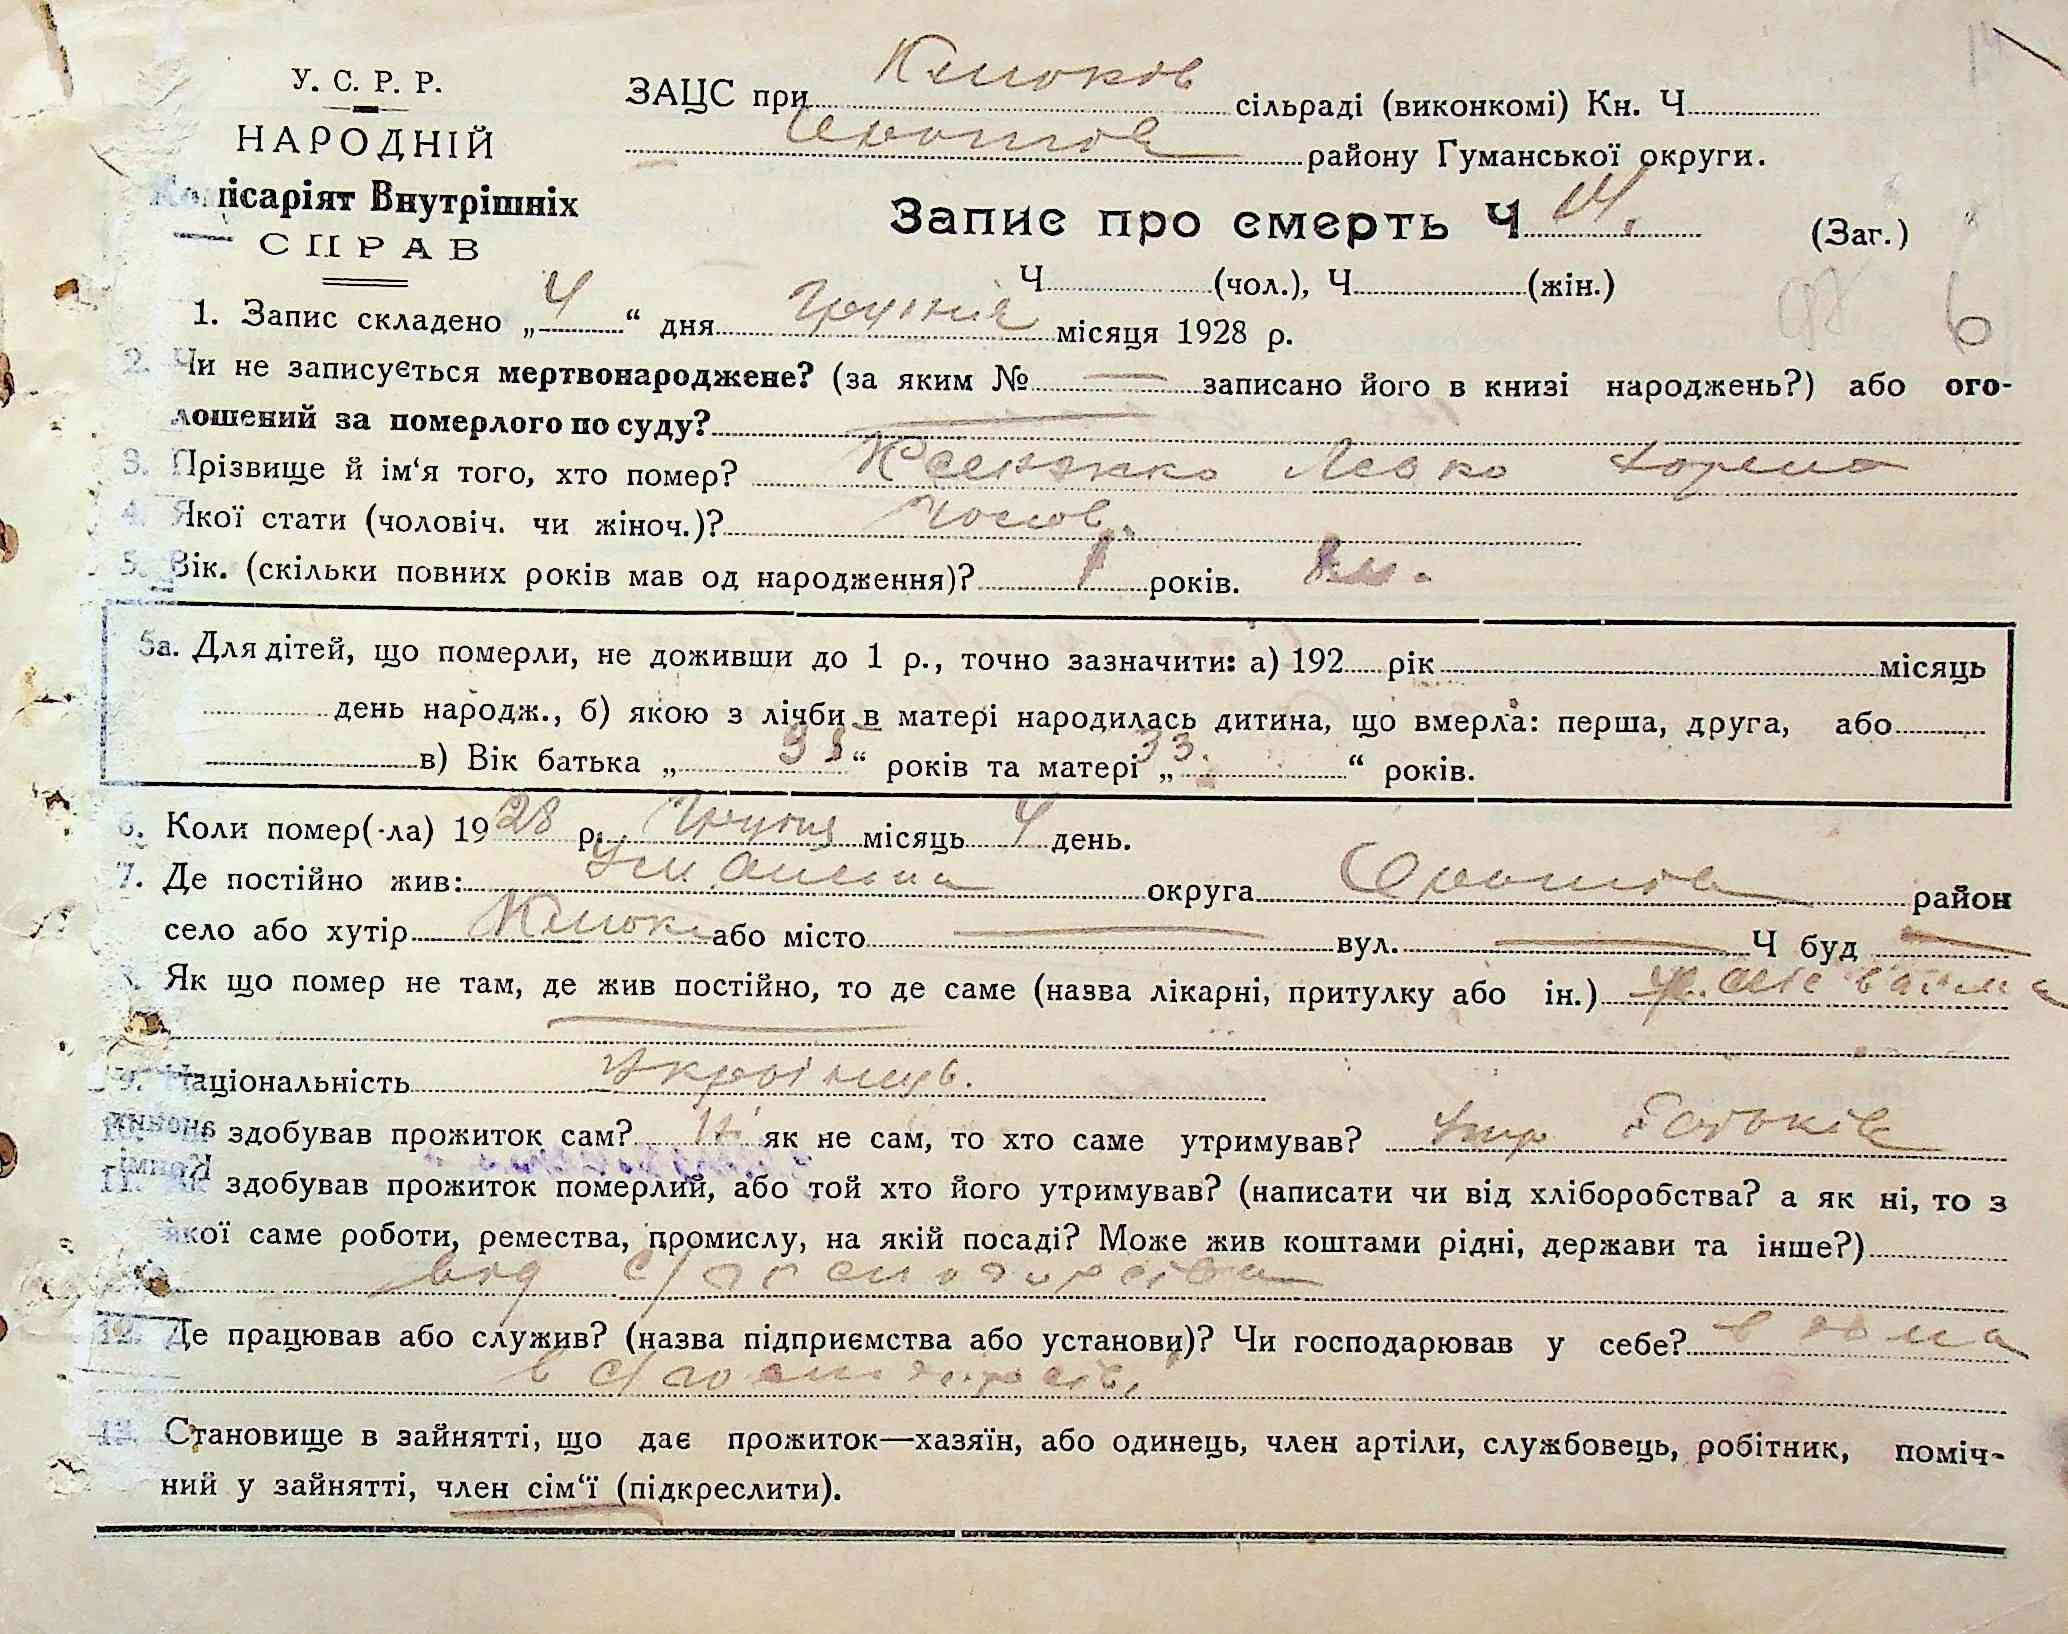 У. С. Р. Р.
НАРОДНІЙ
Комісаріят Внутрішніх
СПРАВ
ЗАЦС при Клюков сільраді (виконкомі) Кн. Ч
Оратов району Гуманської округи.
Запис про смерть Ч 14. (Заг.)
Ч (чол.), Ч (жін.)
6
1. Запис складено „4“ дня Грудня місяця 1928 р.
2. Чи не записується мертвонароджене? (за яким № — записано його в книзі народжень?) або ого-
лошений за померлого по суду?
3. Прізвище й ім‘я того, хто помер? Левко
4. Якої стати (чоловіч. чи жіноч.)? Чолов.
5. Вік. (скільки повних років мав од народження)? 1 років. 8 м.
5а. Для дітей, що померли, не доживши до 1 р., точно зазначити: а) 192 рік місяць
день народж., б) якою з лічби в матері народилась дитина, що вмерла: перша, друга, або
в) Вік батька „35“ років та матері „33“ років.
6. Коли помер(-ла) 1928 р. Грудня місяць 4 день.
7. Де постійно жив: Уманська округа Оратов район
село або хутір Клюки або місто — вул. — Ч буд —
8. Як що помер не там, де жив постійно, то де саме (назва лікарні, притулку або ін.)
9. Національність Українець.
10. Чи здобував прожиток сам? ні як не сам, то хто саме утримував? утр батьків
11. Як здобував прожиток померлий, або той хто його утримував? (написати чи від хліборобства? а як ні, то з
якої саме роботи, ремества, промислу, на якій посаді? Може жив коштами рідні, держави та інше?)
від с/господарства
12. Де працював або служив? (назва підприємства або установи)? Чи господарював у себе? в дома
в с/господарстві
13. Становище в зайнятті, що дає прожиток—хазяїн, або одинець, член артіли, службовець, робітник, поміч-
ний у зайнятті, член сім‘ї (підкреслити).